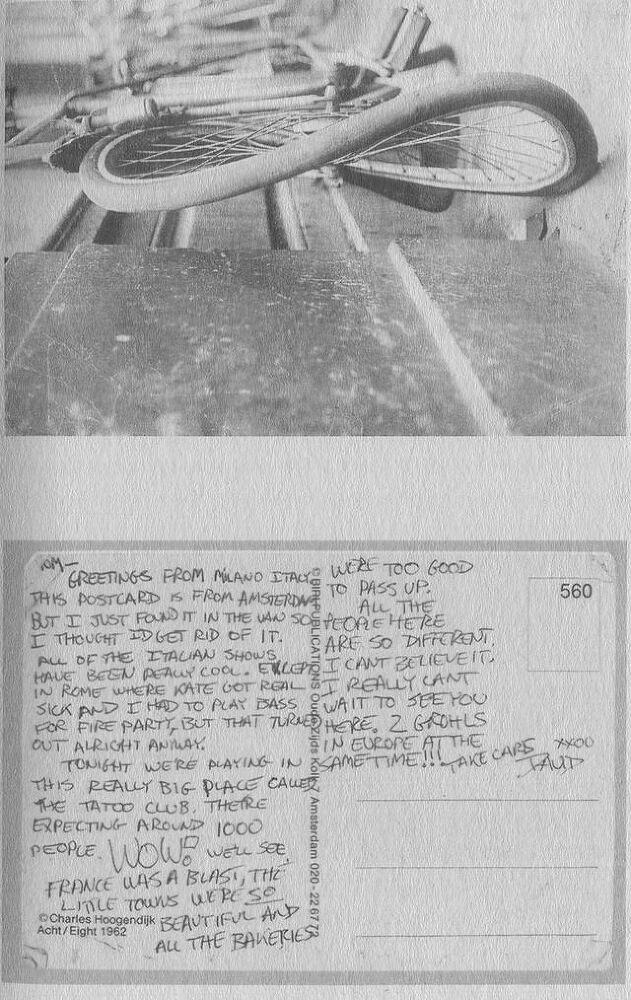 MOM-
GREETINGS FROM MILANO ITALY
THIS POSTCARD IS FROM AMSTERDAM
BUT I JUST FOUND IT IN THE VAN SO
I THOUGHT ID GET RID OF IT.
ALL OF THE ITALIAN SHOWS
HAVE BEEN REALLY COOL. EXCEPT
IN ROME WHERE KATE GOT REAL
SICK AND I HAD TO PLAY BASS
FOR FIRE PARTY, BUT THAT TURNED
OUT ALRIGHT ANYWAY.
TONIGHT WERE PLAYING IN
THIS REALLY BIG PLACE CALLED
THE TATOO CLUB. THEIRE
EXPECTING AROUND 1000
PEOPLE. WOW! WELL SEE.
FRANCE WAS A BLAST, THE
LITTLE TOWNS WERE SO
BEAUTIFUL AND
ALL THE BAKERIES
© Charles Hoogendijk
Acht/Eight 1962
Amsterdam 020-226772
WERE TOO GOOD
TO PASS UP.
ALL THE
PEOPLE HERE
ARE SO DIFFERENT.
I CANT BELIEVE IT.
I REALLY CANT
WAIT TO SEE YOU
HERE. 2 GROHLS
IN EUROPE AT THE
SAME TIME!!! TAKE CARE XXOO
560